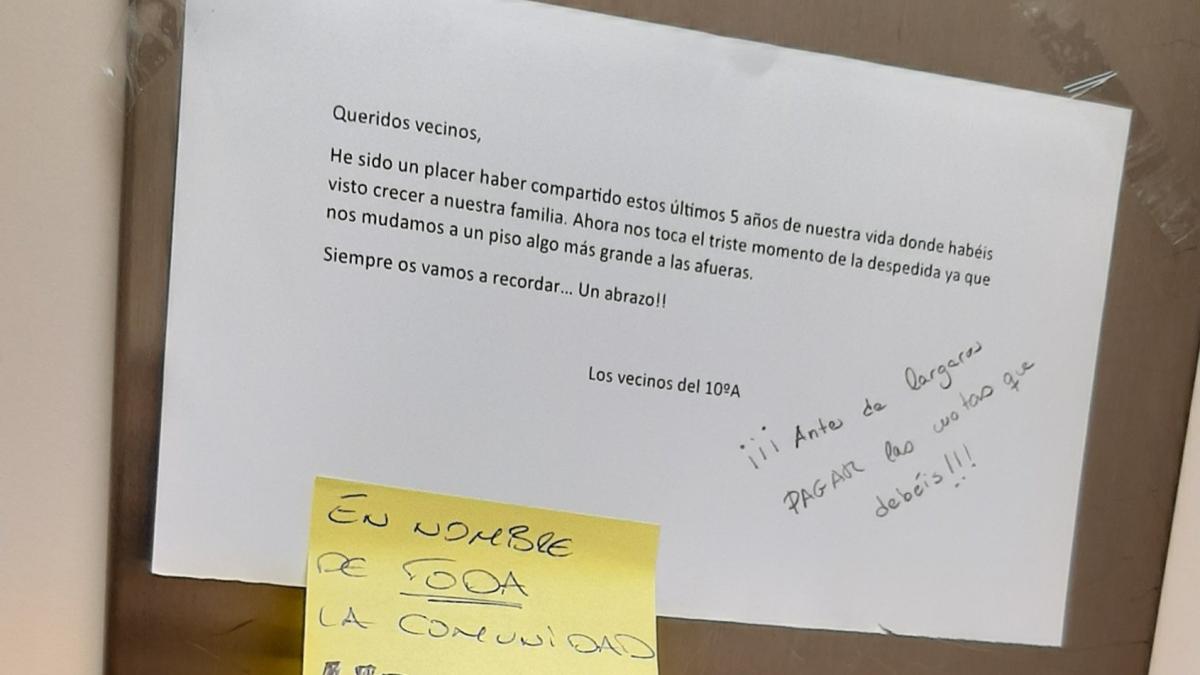 Queridos vecinos,
He sido un placer haber compartido estos últimos 5 años de nuestra vida donde habéis
visto crecer a nuestra familia. Ahora nos toca el triste momento de la despedida ya que
nos mudamos a un piso algo más grande a las afueras.
Siempre os vamos a recordar... Un abrazo!!
Los vecinos del 10ºA
¡¡¡Antes de largaros
PAGAR las cuotas que
debéis!!!
EN NOMBRE
DE TODA
LA COMUNIDAD